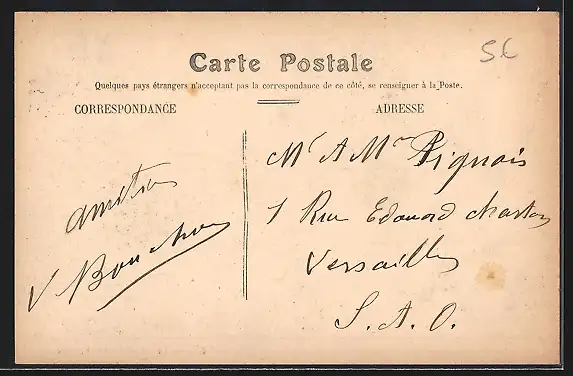 SC
Carte Postale
Quelques pays étrangers n'acceptant pas la correspondance de ce côté, se renseigner à la Poste.
CORRESPONDANCE
ADRESSE
Mr & Mme Pignois
1 Rue Edouard Charton
Versailles
S. & O.
amitiés
V Bouchou